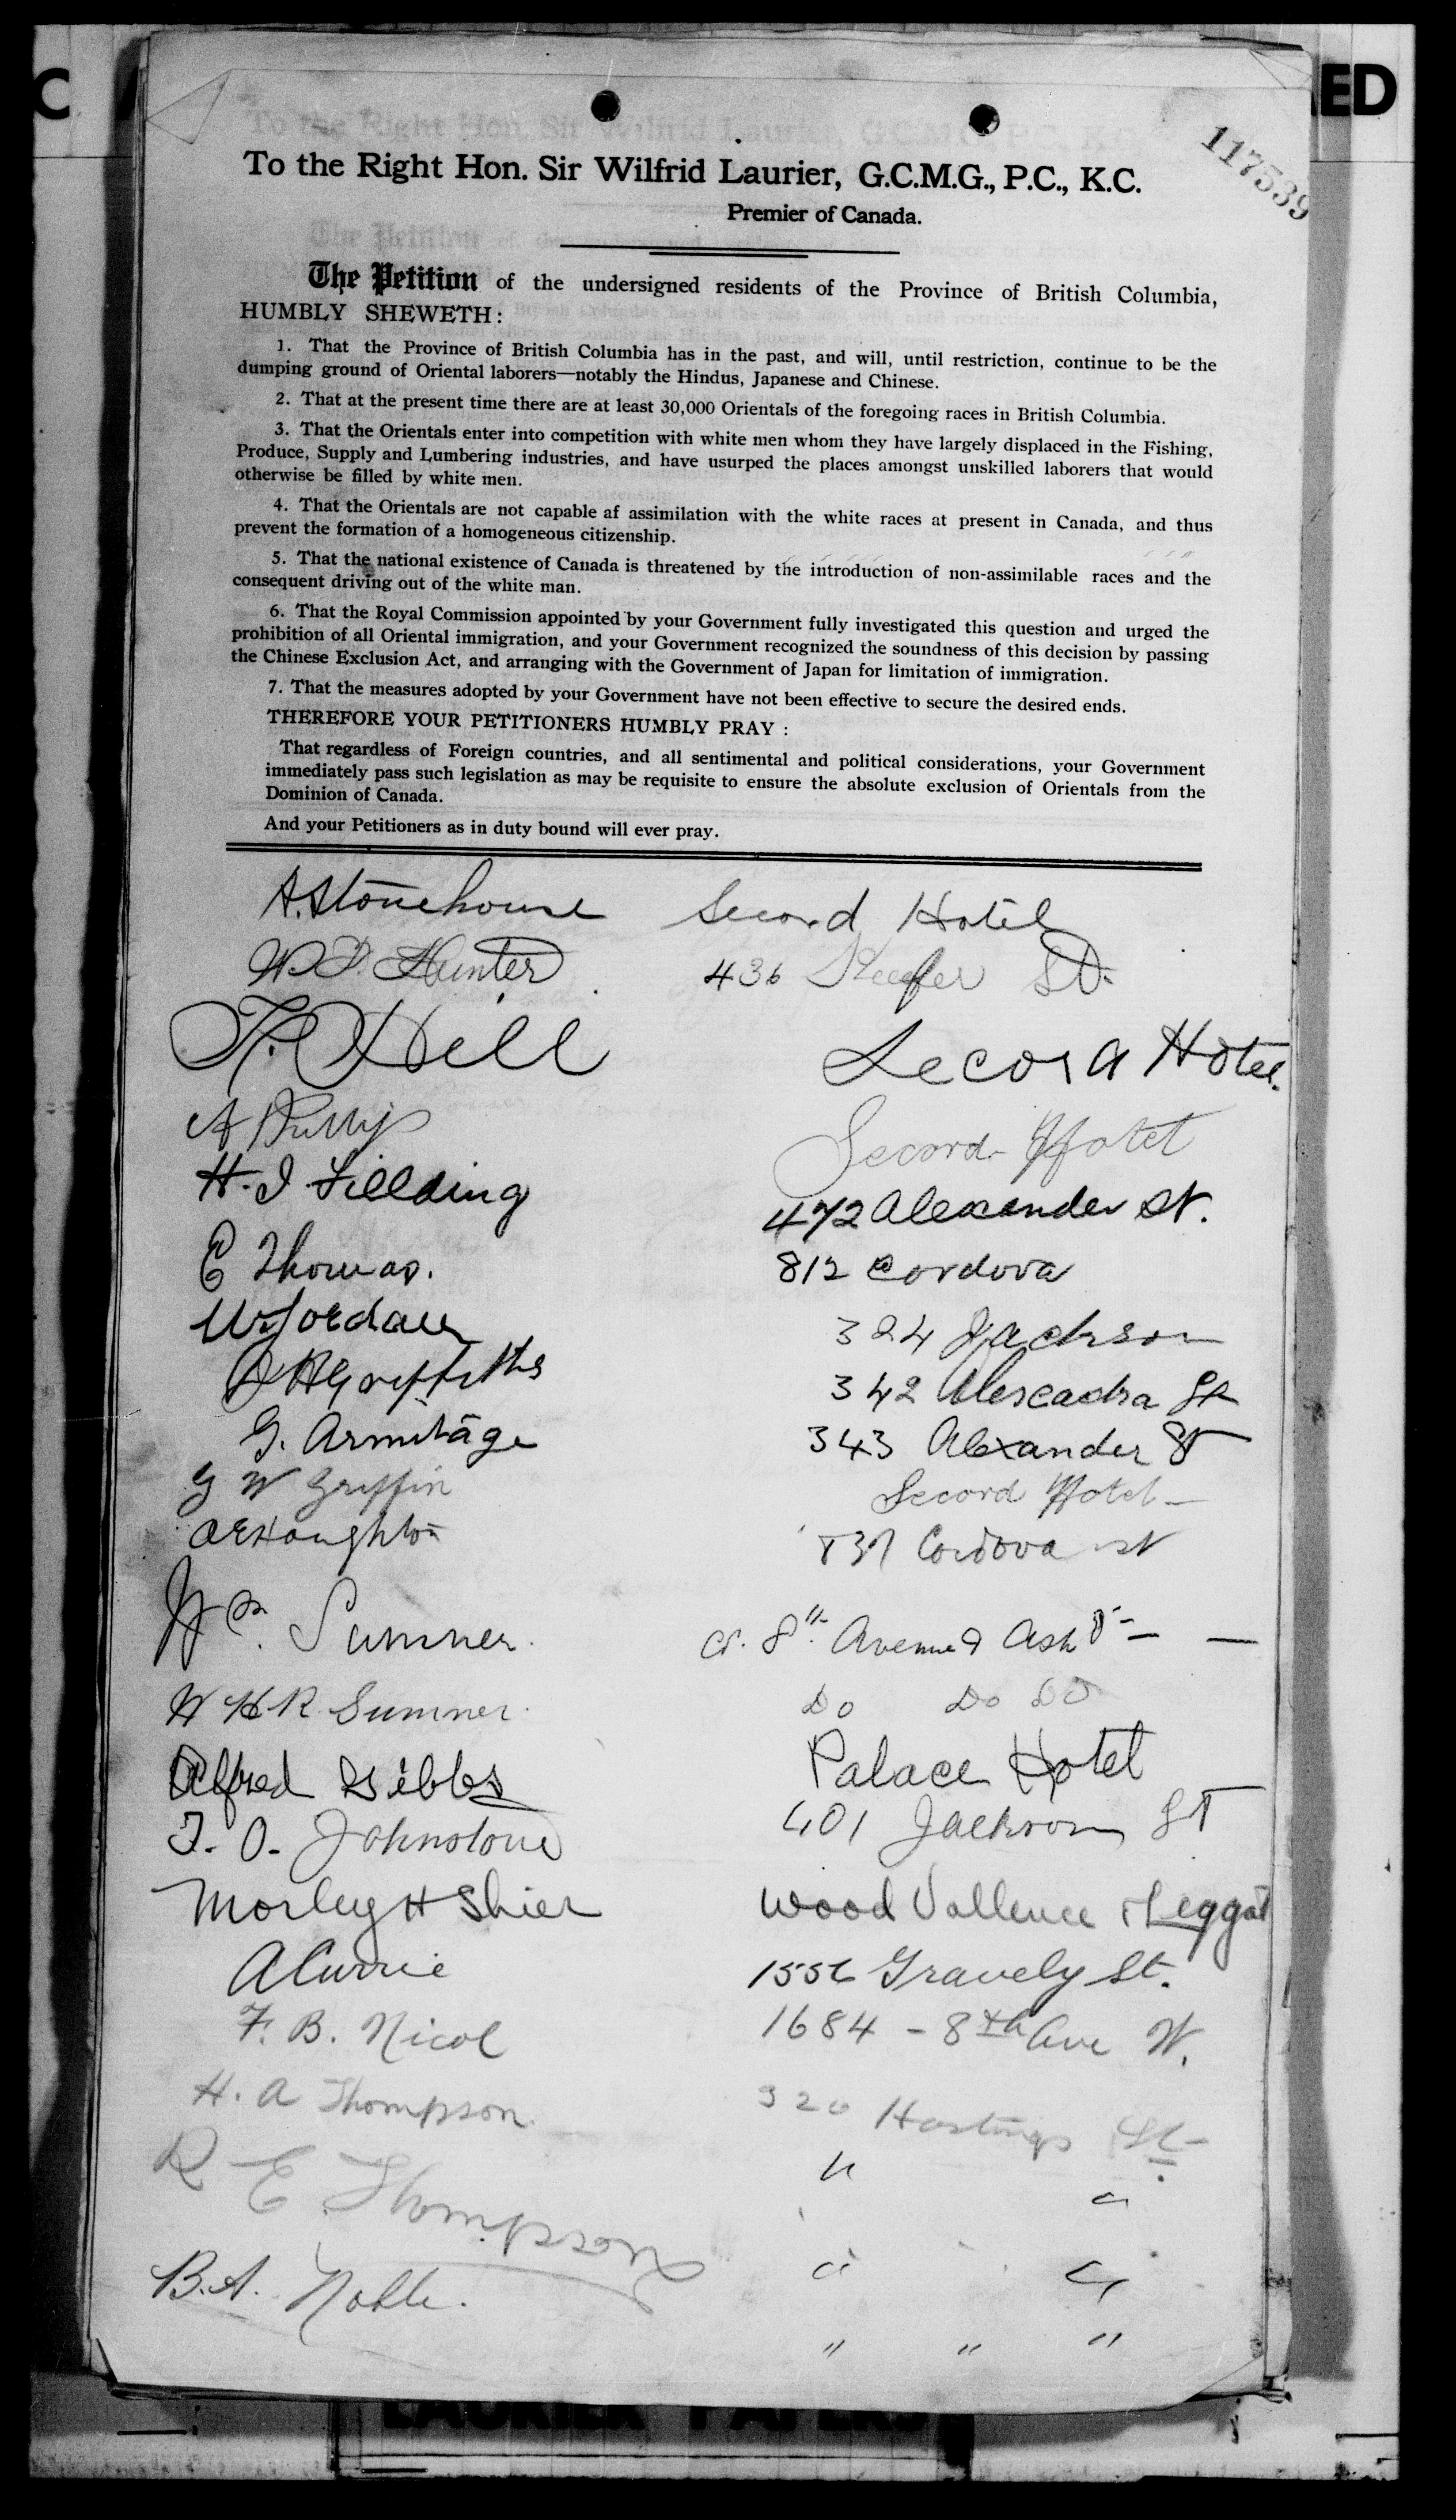 C
ED
117539
To the Right Hon. Sir Wilfrid Laurier, G.C.M.G., P.C., K.C.
Premier of Canada.
The Petition of the undersigned residents of the Province of British Columbia,
HUMBLY SHEWETH:
1. That the Province of British Columbia has in the past, and will, until restriction, continue to be the
dumping ground of Oriental laborers—notably the Hindus, Japanese and Chinese.
2. That at the present time there are at least 30,000 Orientals of the foregoing races in British Columbia.
3. That the Orientals enter into competition with white men whom they have largely displaced in the Fishing,
Produce, Supply and Lumbering industries, and have usurped the places amongst unskilled laborers that would
otherwise be filled by white men.
4. That the Orientals are not capable af assimilation with the white races at present in Canada, and thus
prevent the formation of a homogeneous citizenship.
5. That the national existence of Canada is threatened by the introduction of non-assimilable races and the
consequent driving out of the white man.
6. That the Royal Commission appointed by your Government fully investigated this question and urged the
prohibition of all Oriental immigration, and your Government recognized the soundness of this decision by passing
the Chinese Exclusion Act, and arranging with the Government of Japan for limitation of immigration.
7. That the measures adopted by your Government have not been effective to secure the desired ends.
THEREFORE YOUR PETITIONERS HUMBLY PRAY :
That regardless of Foreign countries, and all sentimental and political considerations, your Government
immediately pass such legislation as may be requisite to ensure the absolute exclusion of Orientals from the
Dominion of Canada.
And your Petitioners as in duty bound will ever pray.
A. Stonehouse Secord Hotel
Hunter 436 Keefer St.
Hill Secord Hotel.
A Secord Hotel
H. I. Fielding 472 Alexander St.
E Thomas. 812 Cordova
W Jordan 324 Jackson
Griffiths 342 St
G. Armitage 343 Alexander St
G W Griffin Secord Hotel
Houghton 837 Cordova St
Wm. Sumner. Cr. 8th Avenue & Ash St
W H R Sumner. Do Do Do
Alfred Gibbs Palace Hotel
T. O. Johnstone 401 Jackson St
Morley H Shier Wood Vallence & Leggat
A Currie 1556 Gravely St.
F. B. Nicol 1684 - 8th Ave W.
H. A Thompson 320 Hastings St
R E. Thompson " "
B. A. Noble. " "
" " "
LAURIER PAPERS